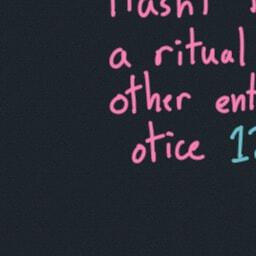 a ritual
other ent
otice 12